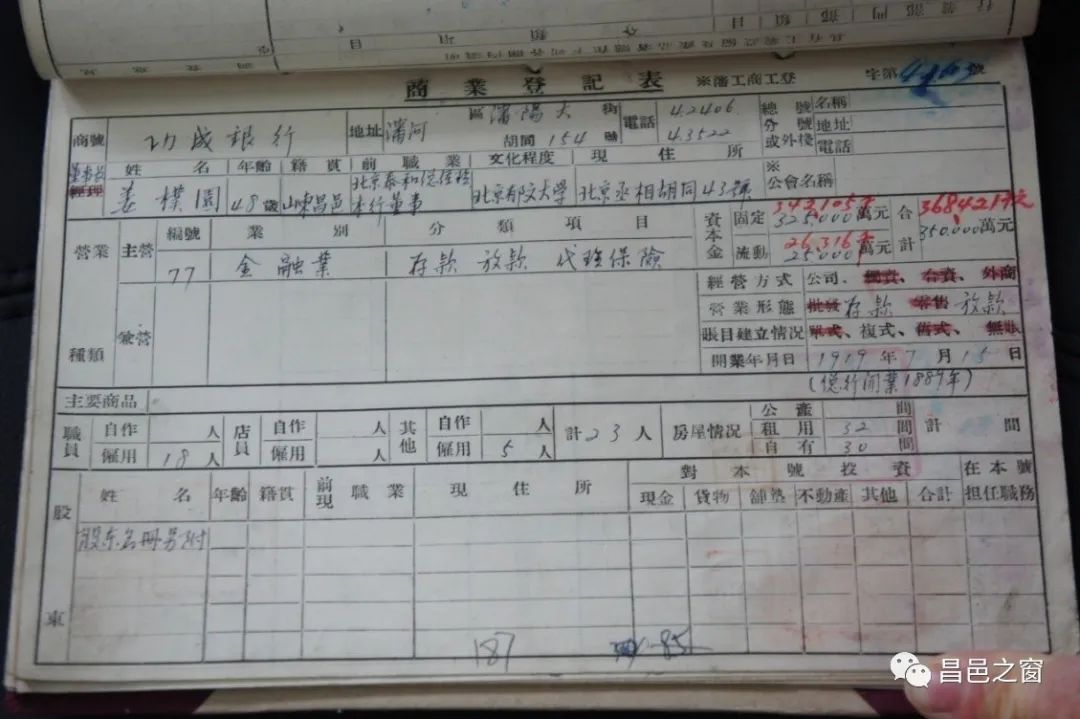 商業登記表 ※瀋工商工登 字第 號
商號 功成銀行 地址 瀋河 區 瀋陽大街 胡同 154 號 電話 42406 43522 總號 分號 或外棧 名稱 地址 電話
董事長 經理 姓名 年齡 籍貫 前職業 文化程度 現住所 ※公會名稱
姜樸園 48歲 山東昌邑 本行董事 北京 大學 北京丞相胡同43號
營業種類 主營 兼營 編號 業別 分類項目
77 金融業 存款 放款 代理保險
資本金 固定 342,105千 325,000萬元 流動 26,316千 25,000萬元 合計 368421千元 350,000萬元
經營方式 公司、獨資、合資、外商
營業形態 批發 存款 零售 放款
賬目建立情況 單式、複式、舊式、無賬
開業年月日 1919年7月15日
(總行開業1889年)
主要商品
職員 自作 人 僱用 18人 店員 自作 人 僱用 人 其他 自作 人 僱用 5人 計23人 房屋情況 公產 間 租用 32間 自有 30間 計 間
股東 姓名 年齡 籍貫 前現職業 現住所 對本號投資 在本號担任職務
現金 貨物 舖墊 不動產 其他 合計
股东名冊另附
187 85
昌邑之窗